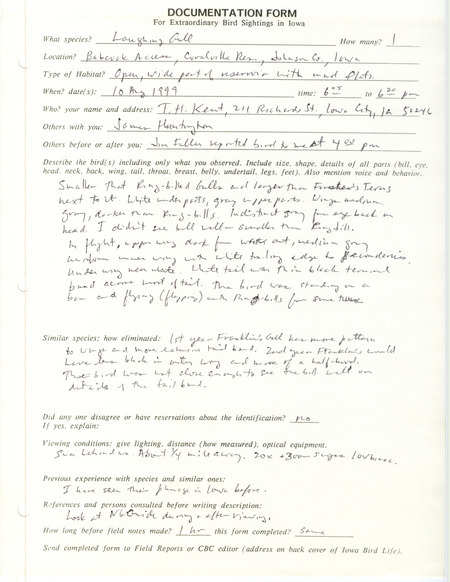 DOCUMENTATION FORM
For Extraordinary Bird Sightings in Iowa
What species? Laughing Gull How many? 1
Location? Babcock Access, Coralville Res., Johnson Co., Iowa
Type of Habitat? Open, wide part of reservoir with mud flats.
When? date(s): 10 Aug 1999 time: 6:05 to 6:20 pm
Who? your name and address: T.H. Kent, 211 Richards St., Iowa City, IA 52246
Others with you: James Huntington
Others before or after you: Jim Fuller reported bird to me at 4:00 pm
Describe the bird(s) including only what you observed. Include size, shape, details of all parts (bill, eye,
head, neck, back, wing, tail, throat, breast, belly, undertail, legs, feet). Also mention voice and behavior.
Smaller than Ring-billed Gulls and larger than Forster's Terns
next to it. White underparts, gray upperparts. Wings medium
gray, darker than Ring-bills. Indistinct gray from eye back on
head. I didn't see bill well - smaller than Ring-bill.
In flight, upper wing dark from out, medium gray
uniform inner wing with white trailing edge to secondaries.
Under wing near white. White tail with thin black terminal
band across most of tail. The bird was standing on a
bar and flying (flapping) with Ring-bills for some time
Similar species; how eliminated: 1st year Franklin's Gull has more pattern
to wings and more extensive tail band. 2nd year Franklin's would
have less black in outer wing and more of a half-hood.
The bird was not close enough to see the bill well or
details of the tail band.
Did any one disagree or have reservations about the identification? no
If yes, explain:
Viewing conditions: give lighting, distance (how measured), optical equipment.
Sun behind us. About 1/4 mile away. 20x
Previous experience with species and similar ones:
I have seen this plumage in Iowa before.
References and persons consulted before writing description:
Look at guide during + after viewing.
How long before field notes made? 1 hr this form completed? same
Send completed form to Field Reports or CBC editor (address on back cover of Iowa Bird Life).